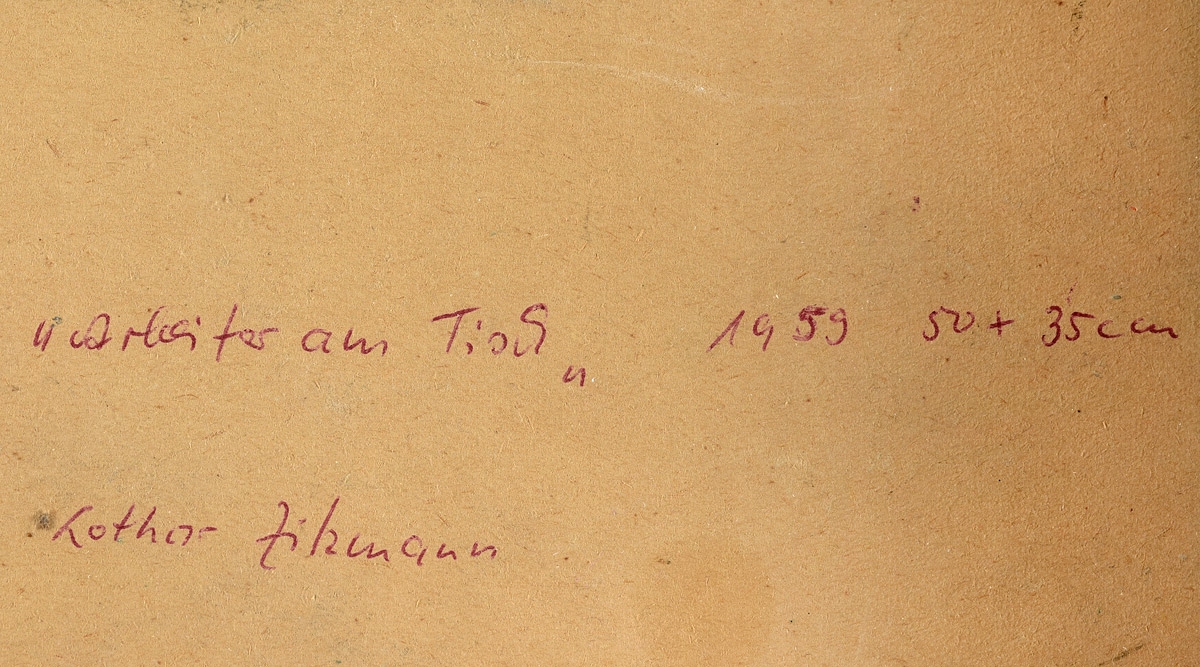 "Arbeiter am Tisch" 1959 50 + 35 cm
Lothar Zitzmann